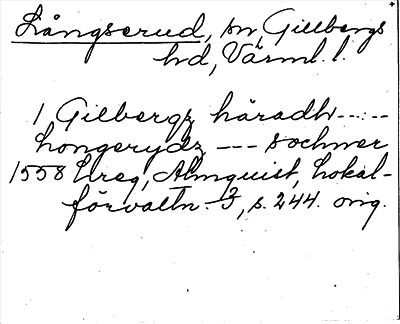 Långserud, sn, Gillbergs
hd, Värml. l.
1 Gilbergz häradh-----
Longerydz --- sochner
1558 Ereg, Almquist, Lokal-
förvaltn. 3, s. 244. orig.